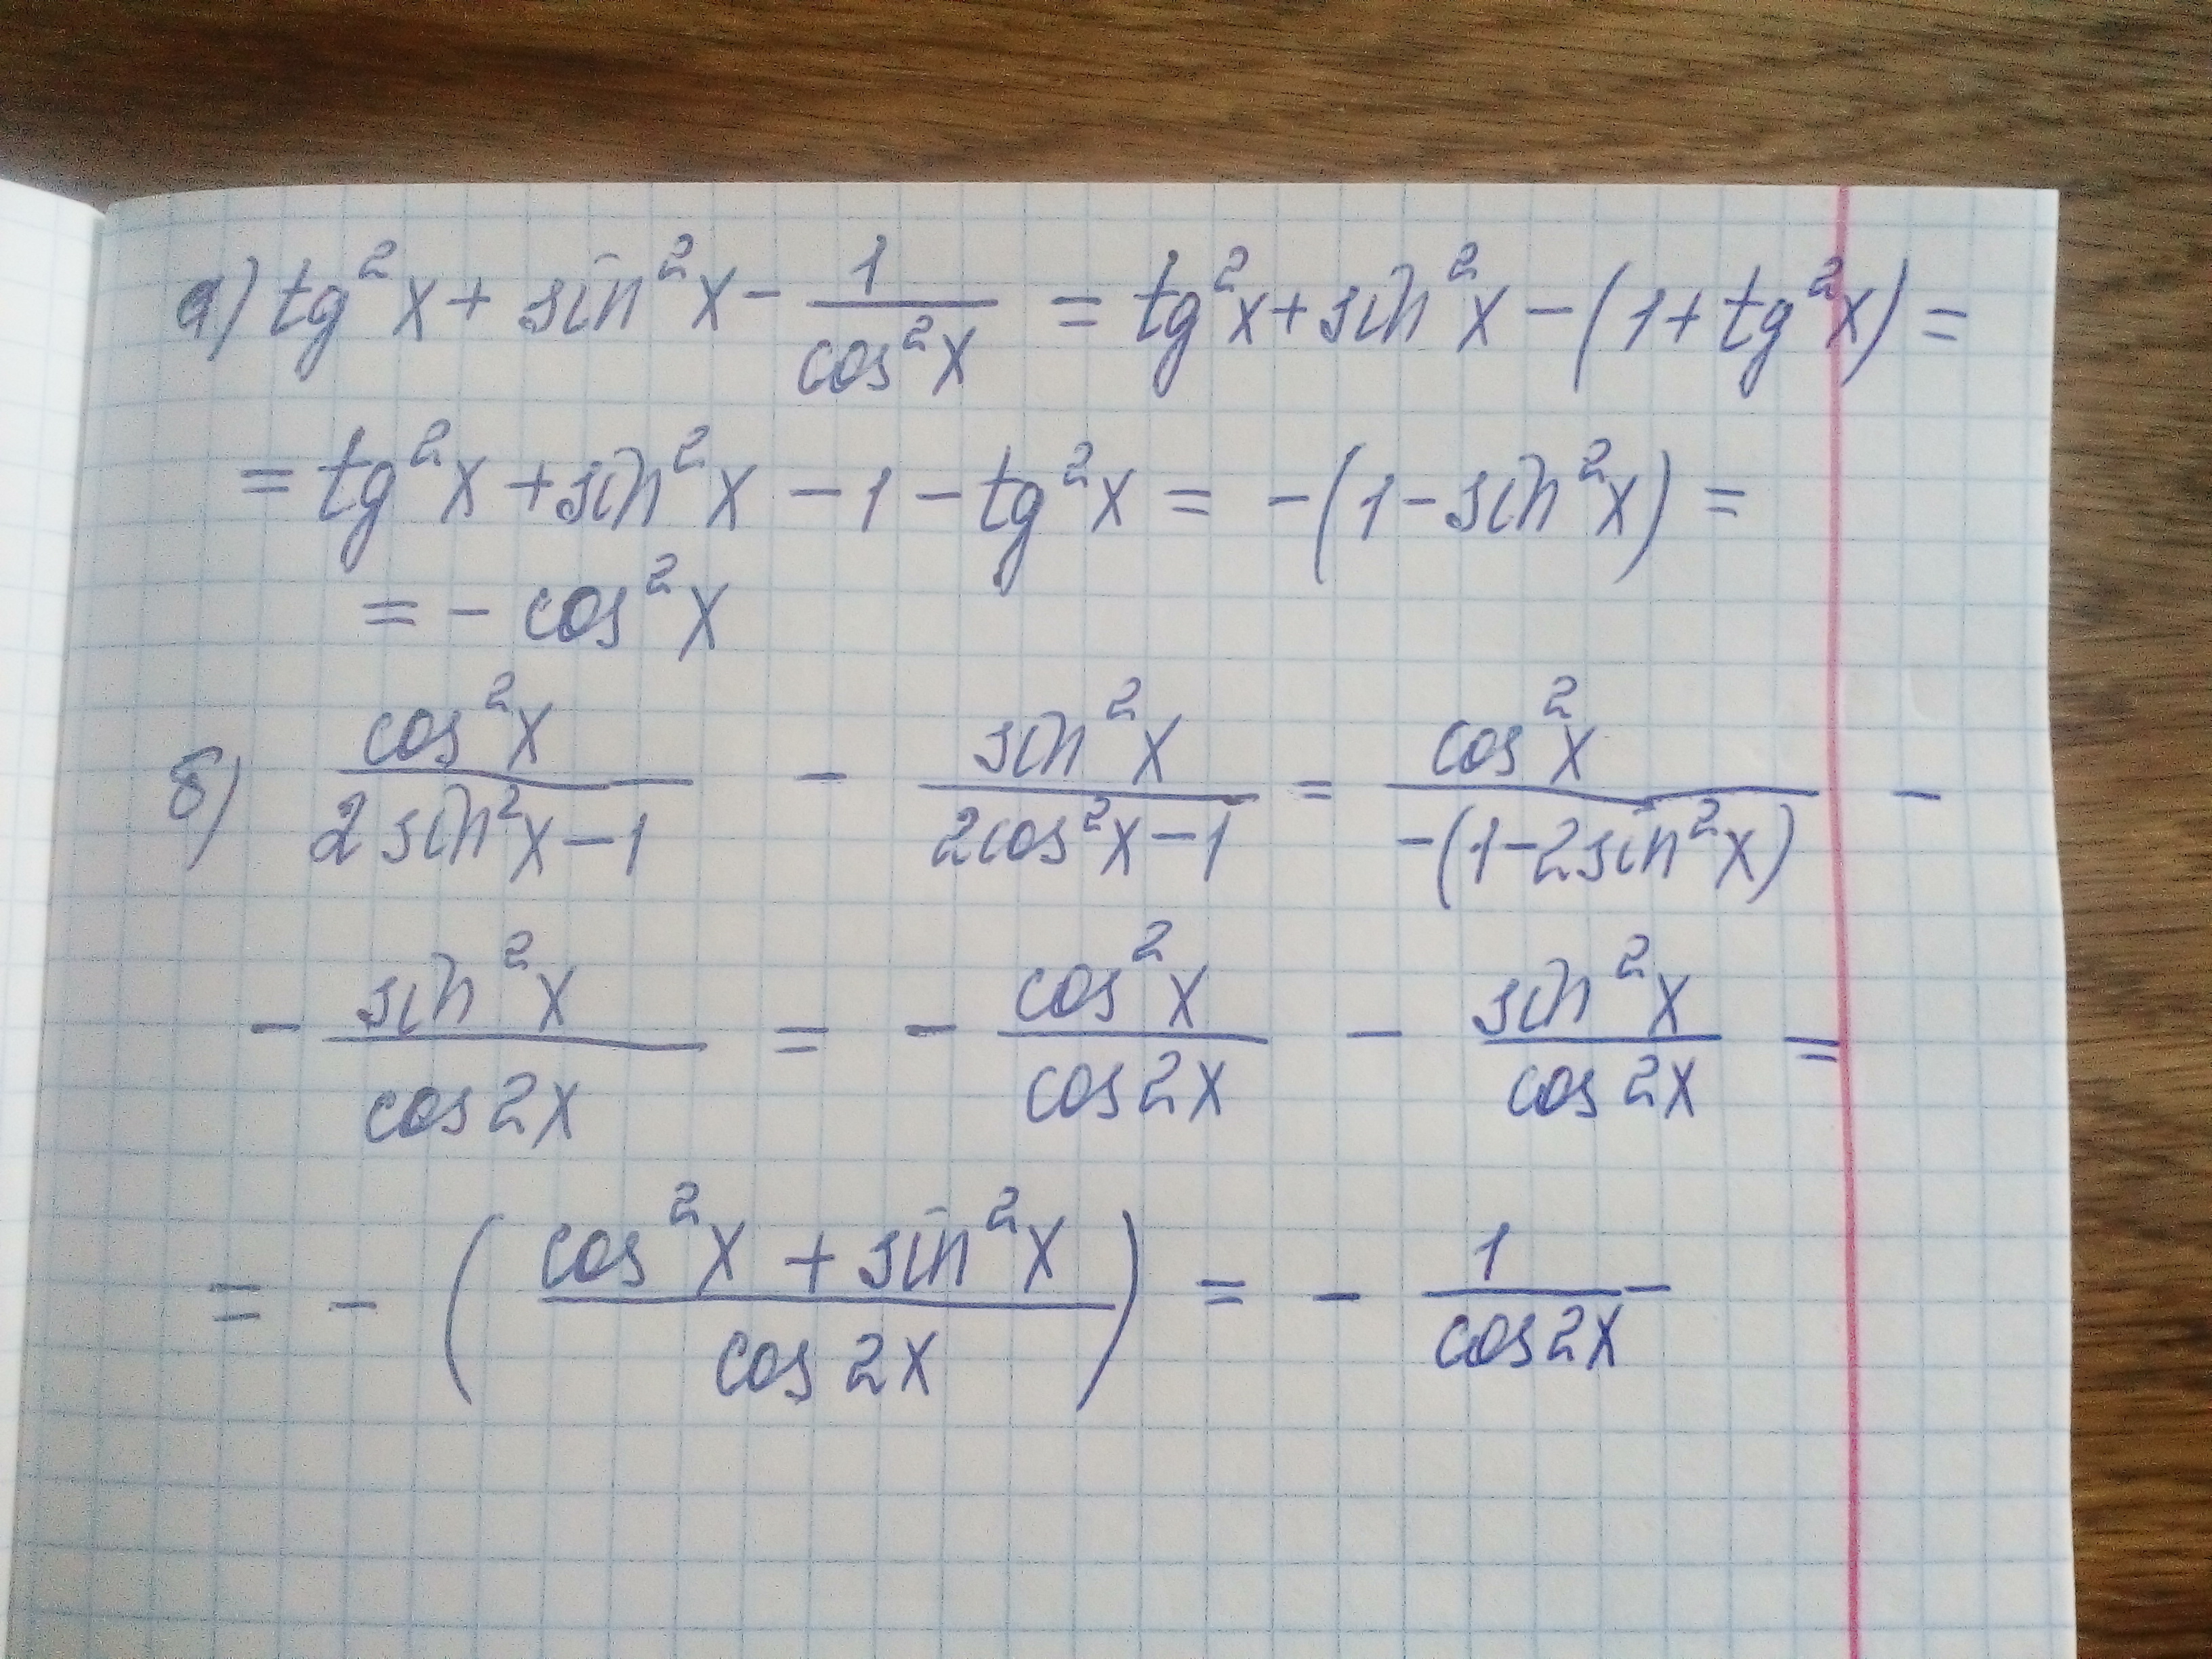 а) tg²x + sin²x - 1/cos²x = tg²x + sin²x - (1 + tg²x) =
= tg²x + sin²x - 1 - tg²x = -(1 - sin²x) =
= - cos²x
б) cos²x/(2sin²x - 1) - sin²x/(2cos²x - 1) = cos²x/(-(1 - 2sin²x)) -
- sin²x/cos2x = - cos²x/cos2x - sin²x/cos2x =
= - ((cos²x + sin²x)/cos2x) = - 1/cos2x